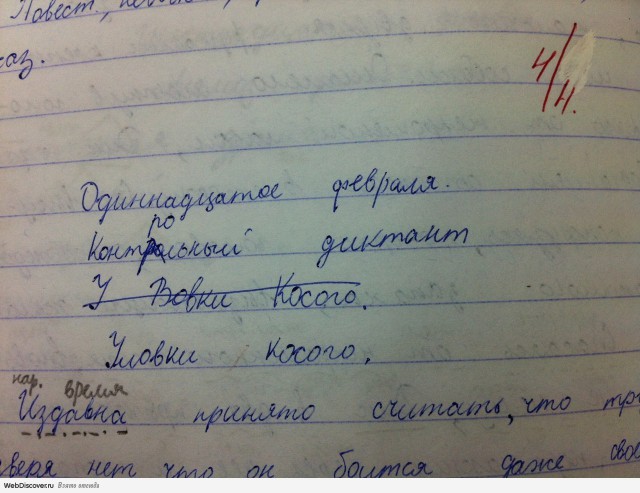 Повест.,
каз.
4/
Н.
Одиннадцатое февраля.
ро
Контрольный диктант
У Вовки Косого.
Уловки косого.
нар. время
Издавна принято считать, что
зверя нет, что он боится даже
WebDiscover.ru Взято отсюда